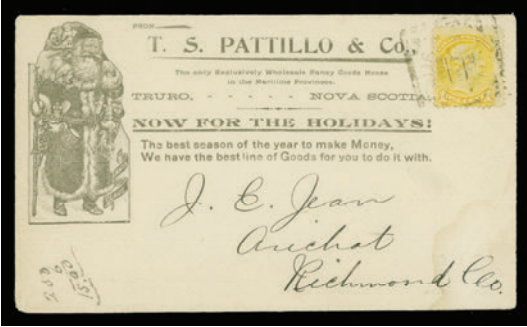 FROM
T. S. PATTILLO & Co.,
The only Exclusively Wholesale Fancy Goods House
in the Maritime Provinces.
TRURO, - - - - - NOVA SCOTIA.
NOW FOR THE HOLIDAYS!
The best season of the year to make Money,
We have the best line of Goods for you to do it with.
J. E. Jean
Arichat
Richmond Co.
15.00